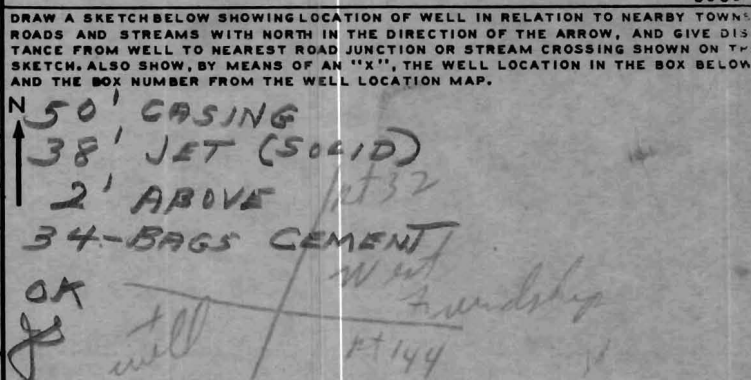 DRAW A SKETCH BELOW SHOWING LOCATION OF WELL IN RELATION TO NEARBY TOWNS
ROADS AND STREAMS WITH NORTH IN THE DIRECTION OF THE ARROW, AND GIVE DIS
TANCE FROM WELL TO NEAREST ROAD JUNCTION OR STREAM CROSSING SHOWN ON TH
SKETCH. ALSO SHOW, BY MEANS OF AN "X", THE WELL LOCATION IN THE BOX BELOW
AND THE BOX NUMBER FROM THE WELL LOCATION MAP.
N
50' CASING
38' JET (SOLID)
2' ABOVE
rt 32
34-BAGS CEMENT
West
Friendship
OK
JS
well
rt 144